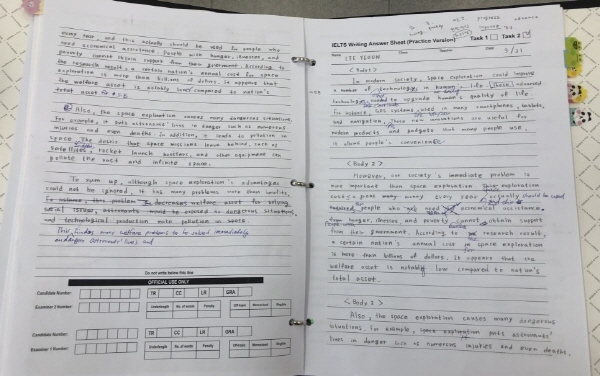 every year, and this actually should be used to people who
need economical assistance. People with hunger, illnesses, and
poverty cannot obtain support from their government. According to
the research result, a certain nation's annual cost for space
exploration is more than billions of dollars. It appears that
the welfare asset is notably low compared to nation's
total asset
Also, the space exploration causes many dangerous situations.
For example, it puts astronauts' lives in danger such as numerous
injuries and even deaths. In addition, it leads to pollution in
space. The debris that space missions leave behind, such as
satellites, rocket launch boosters, and other equipment can
pollute the vast and infinite space.
To sum up, although space exploration's advantages
could not be ignored, it has many problems more than benefits.
decreases welfare asset for solving
social issues, astronauts would be exposed to dangerous situations,
and technological production make pollution in space.
This hinders many welfare problems to be solved immediately
endanger astronauts' lives and
Do not write below this line
OFFICIAL USE ONLY
Candidate Number: TR CC LR GRA
Examiner 2 Number: Underlength No. of words Penalty Off-topic Memorised Illegible
Candidate Number: TR CC LR GRA
Examiner 1 Number: Underlength No. of words Penalty Off-topic Memorised Illegible
progress advance
IELTS Writing Answer Sheet (Practice Version) Task 1 Task 2
Name Class Teacher Date
5/21
<Body 1>
In modern society, space exploration could
a number of technology in human life.
technologies to upgrade human's quality of life
For instance, GPS systems used in many smartphones, tablets,
and navigation. These new innovations are useful for
modern products and gadgets that many people use.
It allows people's convenience.
<Body 2>
However, our society's immediate problem is
more important than space exploration. This exploration
costs money every year actually should be used
people who need economical assistance.
from hunger, illnesses, and poverty cannot obtain support
from their government. According to research result,
a certain nation's annual cost in space exploration
is more than billions of dollars. It appears that the
welfare asset is notably low compared to nation's
total asset.
<Body 3>
Also, the space exploration causes many dangerous
situations. For example, space exploration puts astronauts'
lives in danger such as numerous injuries and even deaths.